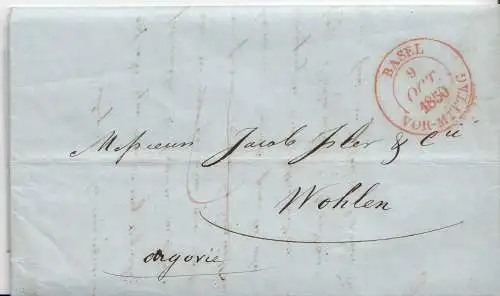 BASEL
9
OCT.
1850
VOR-MITTAG
Messieurs Jacob Isler & Cie
Wohlen
Argovie